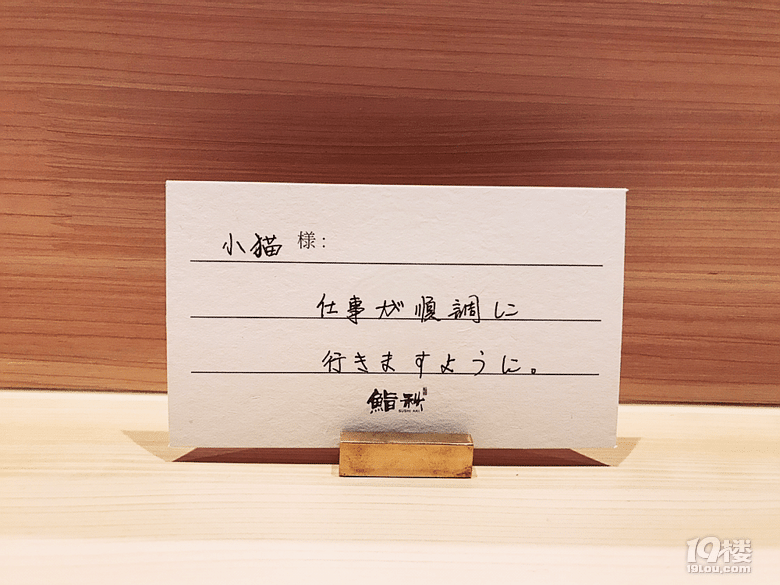 小猫 様:
仕事が順調に
行きますように。
鮨秋
SUSHI AKI
19楼
19lou.com